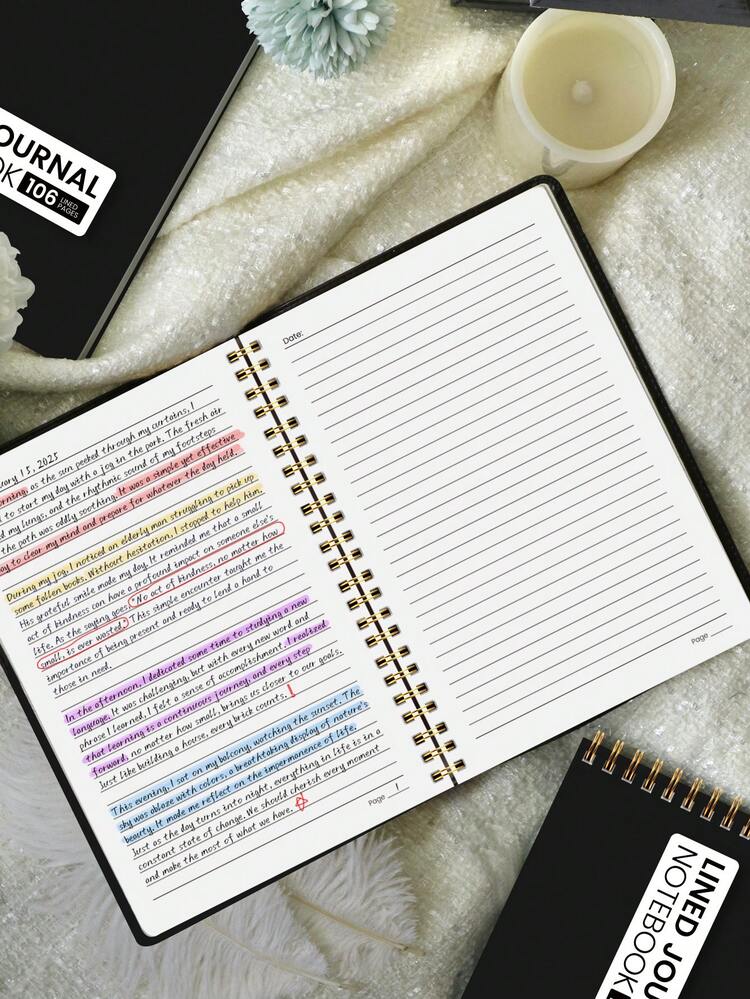 OURNAL
OK 106 LINED
PAGES
uary 15, 2025
orning, as the sun peeked through my curtains, I
d to start my day with a jog in the park. The fresh air
d my lungs, and the rhythmic sound of my footsteps
the path was oddly soothing. It was a simple yet effective
ay to clear my mind and prepare for whatever the day held.
During my jog, I noticed an elderly man struggling to pick up
some fallen books. Without hesitation, I stopped to help him.
His grateful smile made my day. It reminded me that a small
act of kindness can have a profound impact on someone else's
life. As the saying goes, "No act of kindness, no matter how
small, is ever wasted." This simple encounter taught me the
importance of being present and ready to lend a hand to
those in need.
In the afternoon, I dedicated some time to studying a new
language. It was challenging, but with every new word and
phrase I learned, I felt a sense of accomplishment. I realized
that learning is a continuous journey, and every step
forward, no matter how small, brings us closer to our goals.
Just like building a house, every brick counts.
This evening, I sat on my balcony, watching the sunset. The
sky was ablaze with colors, a breathtaking display of nature's
beauty. It made me reflect on the impermanence of life.
Just as the day turns into night, everything in life is in a
constant state of change. We should cherish every moment
and make the most of what we have.
Page 1
Date:
Page
LINED JOU
NOTEBOOK